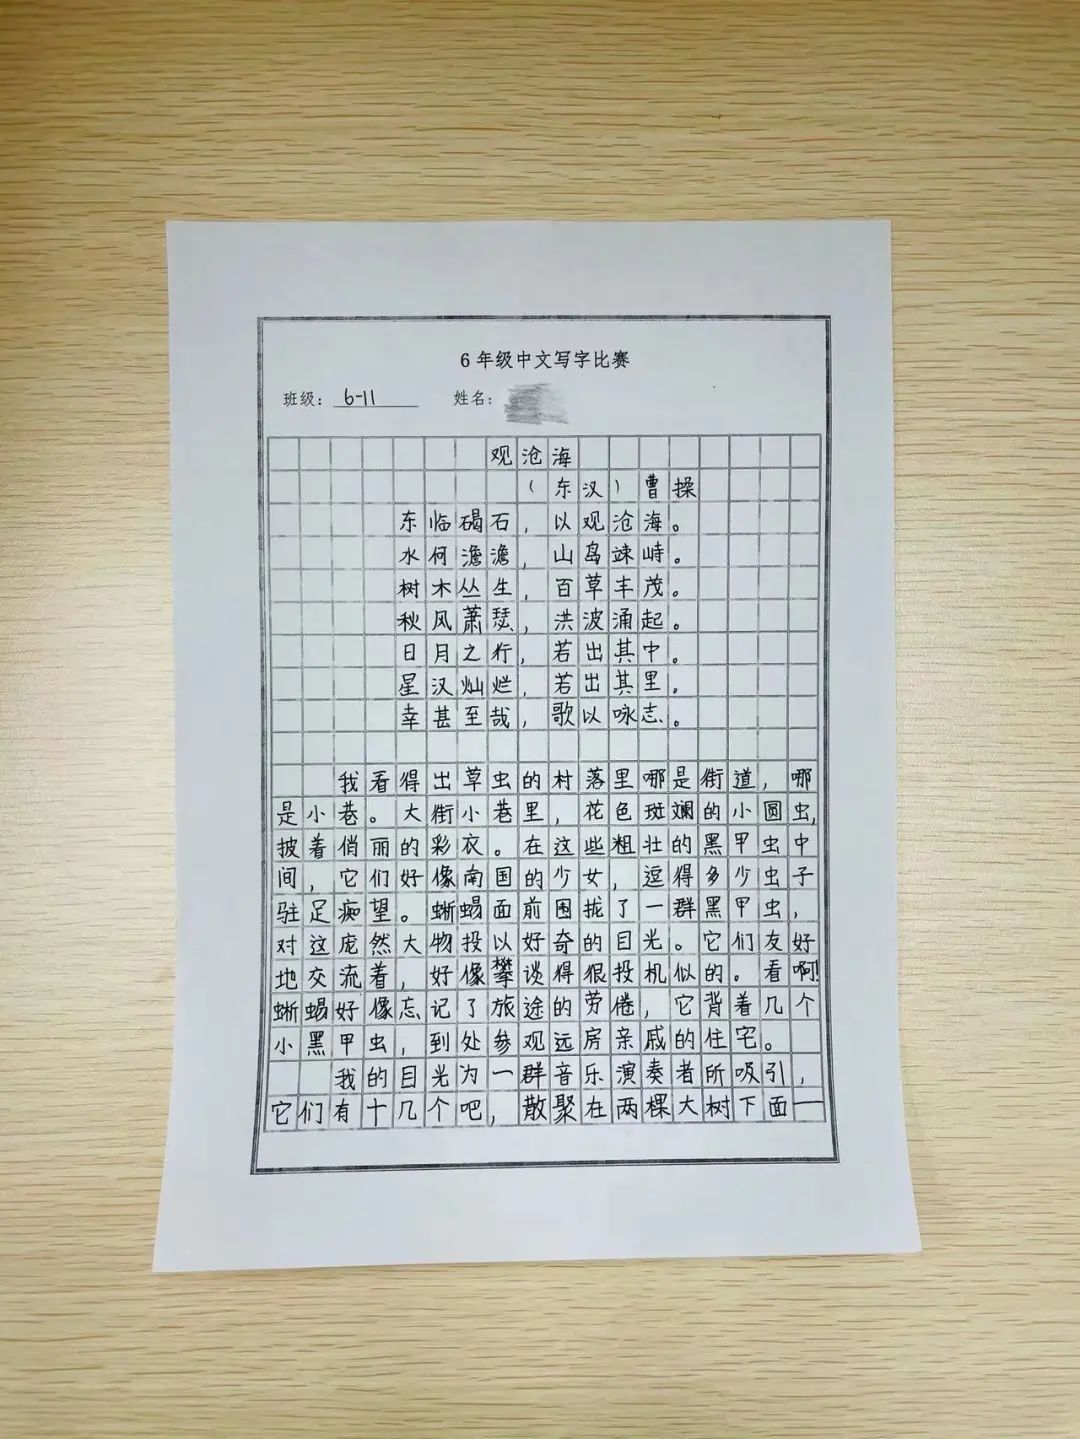 6年级中文写字比赛
班级：6-11 姓名：
观沧海
（东汉）曹操
东临碣石，以观沧海。
水何澹澹，山岛竦峙。
树木丛生，百草丰茂。
秋风萧瑟，洪波涌起。
日月之行，若出其中。
星汉灿烂，若出其里。
幸甚至哉，歌以咏志。
我看得出草虫的村落里哪是街道，哪
是小巷。大街小巷里，花色斑斓的小圆虫，
披着俏丽的彩衣。在这些粗壮的黑甲虫中
间，它们好像南国的少女，逗得多少虫子
驻足痴望。蜥蜴面前围拢了一群黑甲虫，
对这庞然大物投以好奇的目光。它们友好
地交流着，好像攀谈得很投机似的。看啊！
蜥蜴好像忘记了旅途的劳倦，它背着几个
小黑甲虫，到处参观远房亲戚的住宅。
我的目光为一群音乐演奏者所吸引，
它们有十几个吧，散聚在两棵大树下面一